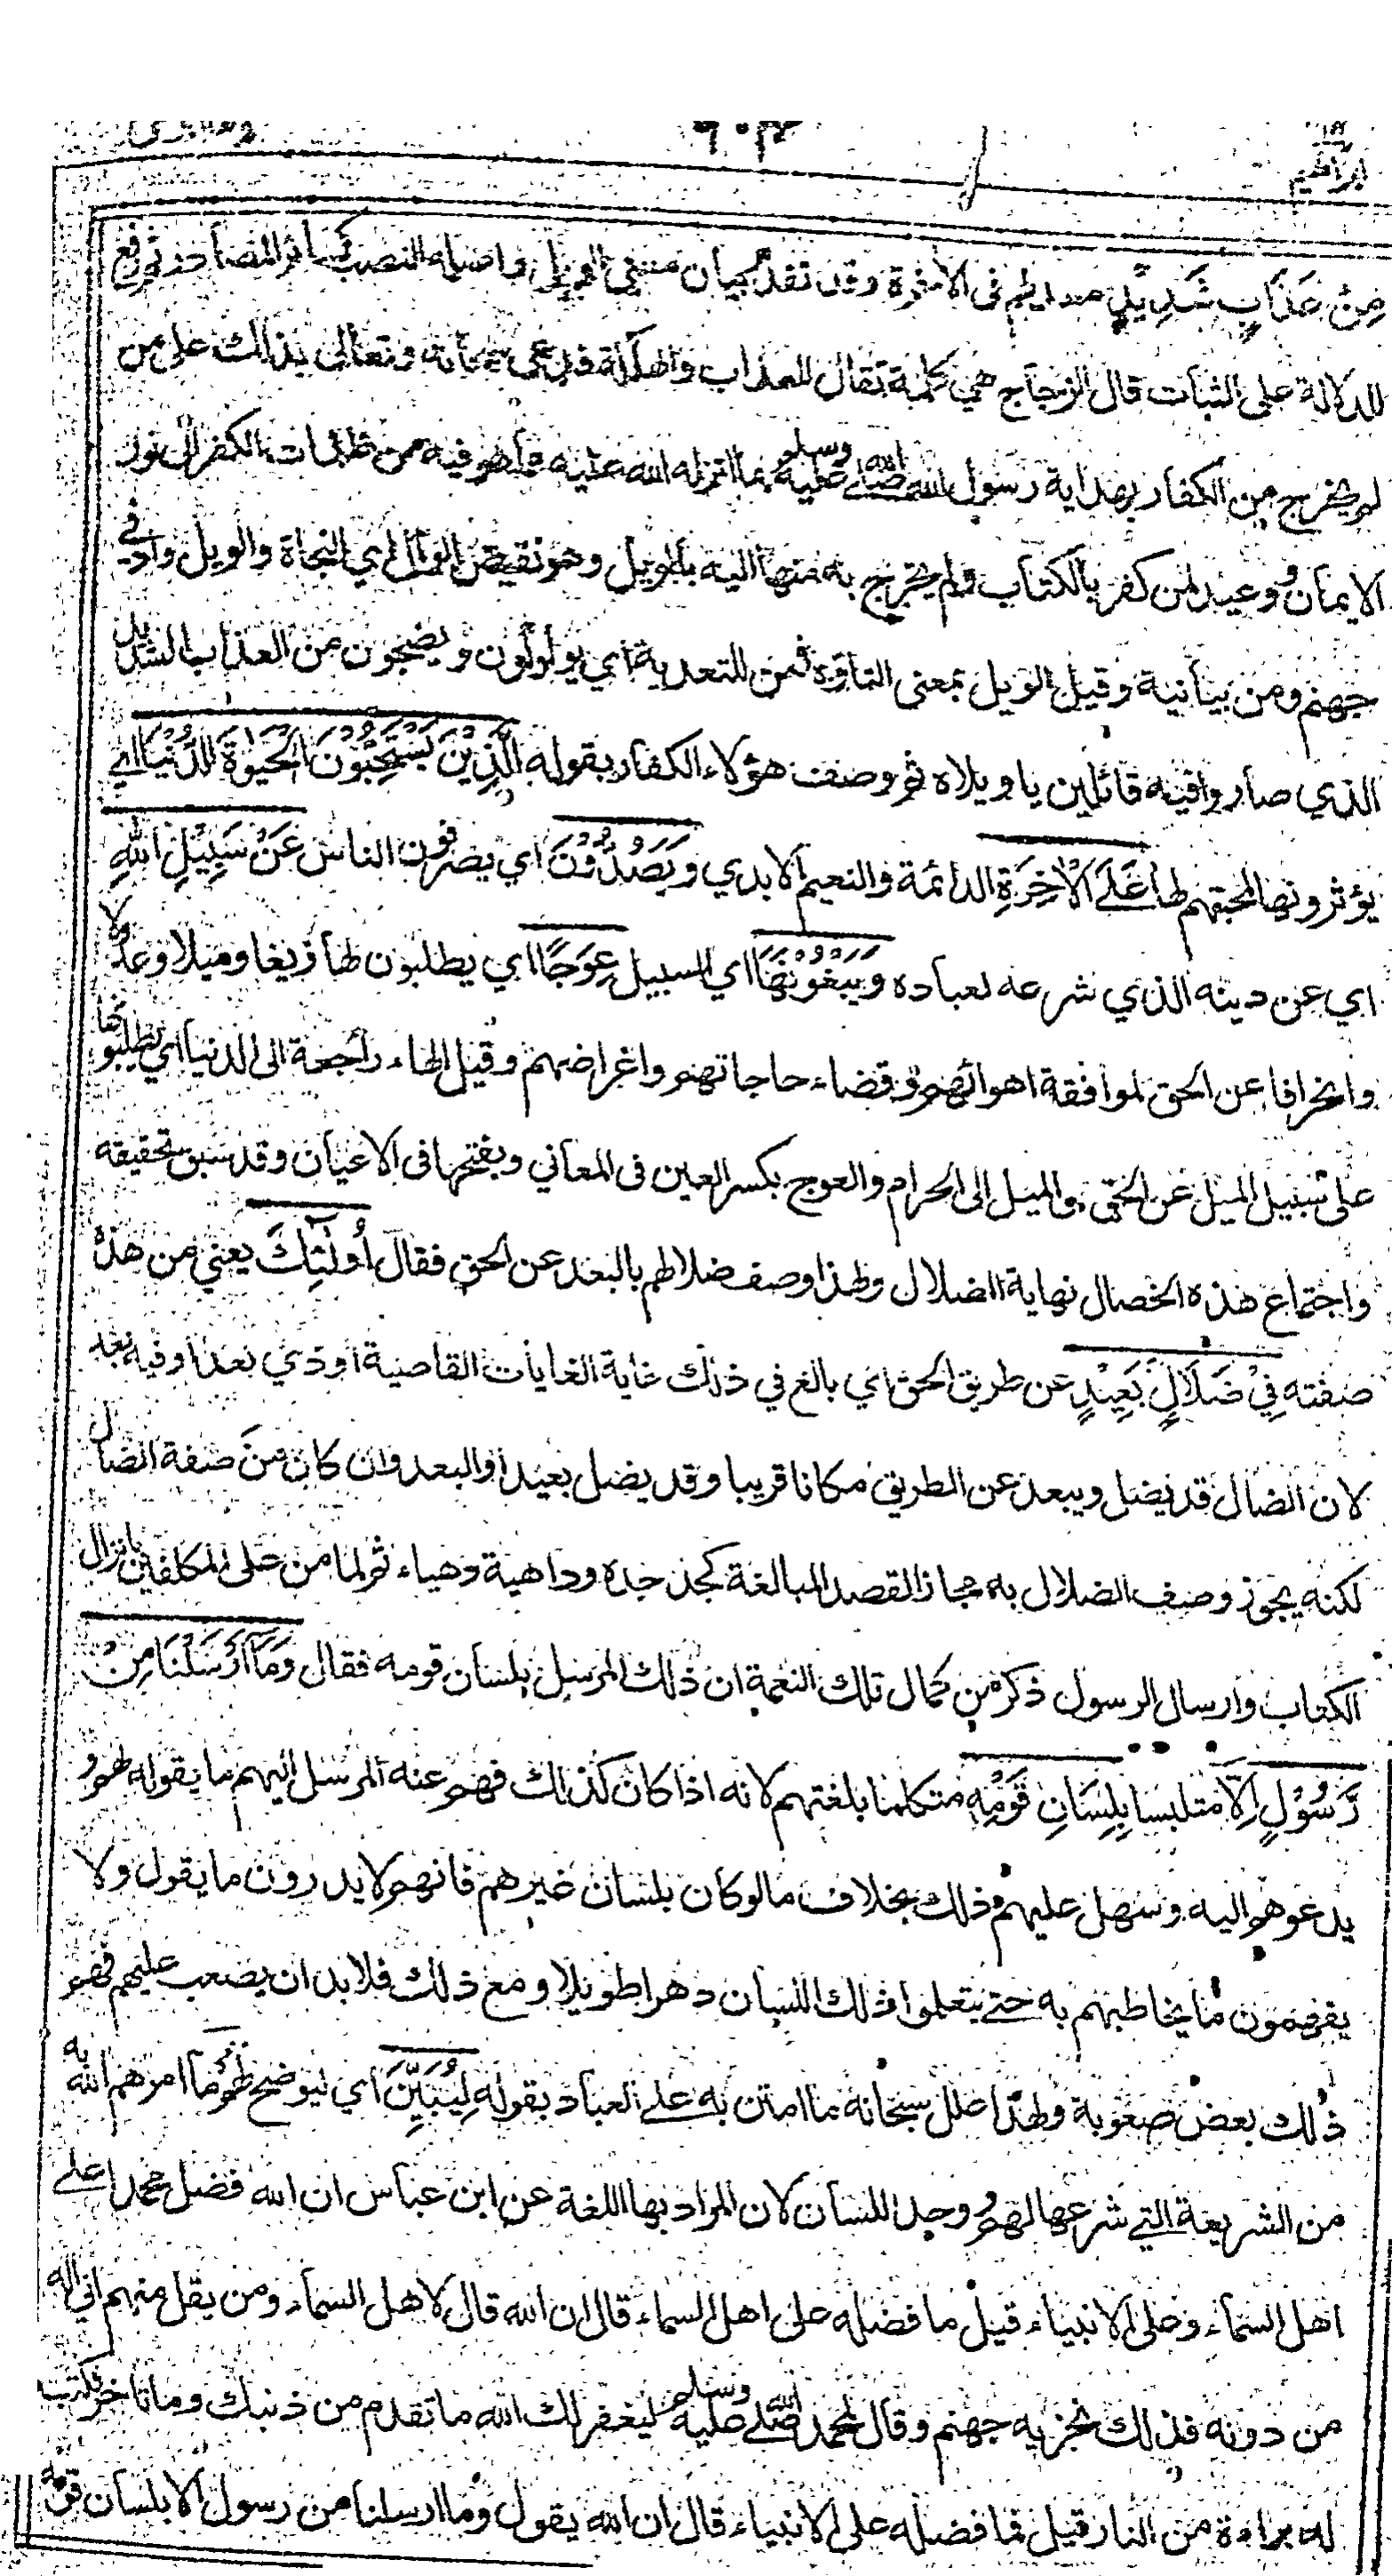 ابراهيم ٦٠٣ وما ابرئ
مِنْ عَذَابٍ شَدِيْدٍ معد لهم فى الأخرة وقد تقدم بيان معنى الويل واصله النصب كسائر المصادر ثم رفع
للدلالة على الثبات قال الزجاج هي كلمة تقال للعذاب والهلكة فدعى سبحانه وتعالى بذلك على من
لم يخرج من الكفار بهداية رسول الله صلى الله عليه وسلم بما انزله الله عليه مما هو فيه من ظلمات الكفر الى نور
الايمان ووعيد لمن كفر بالكتاب ولم يخرج به منها اليه بالويل وهو نقيض الوأل اي النجاة والويل واد في
جهنم ومن بيانية وقيل الويل بمعنى التأوه فمن للتعدية اي يولولون ويضجون من العذاب الشديد
الذي صاروا فيه قائلين يا ويلاه ثم وصف هؤلاء الكفار بقوله الَّذِيْنَ يَسْتَحِبُّوْنَ الْحَيٰوةَ الدُّنْيَا اي
يؤثرونها لمحبتهم لها عَلَى الْاٰخِرَةِ الدائمة والنعيم الابدي وَيَصُدُّوْنَ اي يصرفون الناس عَنْ سَبِيْلِ اللّٰهِ
اي عن دينه الذي شرعه لعباده وَيَبْغُوْنَهَا اي السبيل عِوَجًا اي يطلبون لها زيغا وميلا وعدولا
وانحرافا عن الحق لموافقة اهوائهم وقضاء حاجاتهم واغراضهم وقيل الهاء راجعة الى الدنيا اي يطلبونها
على سبيل الميل عن الحق والميل الى الحرام والعوج بكسر العين فى المعاني وبفتحها فى الاعيان وقد سبق تحقيقه
واجتماع هذه الخصال نهاية الضلال ولهذا وصف ضلالهم بالبعد عن الحق فقال أُولٰٓئِكَ يعني من هذه
صفته فِيْ ضَلَالٍ بَعِيْدٍ عن طريق الحق اي بالغ في ذلك غاية الغايات القاصية او ذي بعد او فيه بعد
لان الضال قد يضل ويبعد عن الطريق مكانا قريبا وقد يضل بعيدا والبعد وان كان من صفة الضال
لكنه يجوز وصف الضلال به مجازا لقصد المبالغة كجد جده وداهية دهياء ثم لما من على المكلفين بانزال
الكتاب وارسال الرسول ذكر من كمال تلك النعمة ان ذلك المرسل بلسان قومه فقال وَمَآ اَرْسَلْنَا مِنْ
رَّسُوْلٍ اِلَّا متلبسا بِلِسَانِ قَوْمِهٖ متكلما بلغتهم لانه اذا كان كذلك فهم عنه المرسل اليهم ما يقوله لهم و
يدعوهم اليه وسهل عليهم ذلك بخلاف ما لو كان بلسان غيرهم فانهم لا يدرون ما يقول ولا
يفهمون ما يخاطبهم به حتى يتعلموا ذلك اللسان دهرا طويلا ومع ذلك فلابد ان يصعب عليهم فهم
ذلك بعض صعوبة ولهذا علل سبحانه ما امتن به على العباد بقوله لِيُبَيِّنَ اي ليوضح لَهُمْ ما امرهم الله به
من الشريعة التي شرعها لهم ووحد اللسان لان المراد بها اللغة عن ابن عباس ان الله فضل محمدا على
اهل السماء وعلى الانبياء قيل ما فضله على اهل السماء قال ان الله قال لاهل السماء ومن يقل منهم اني اله
من دونه فذلك نجزيه جهنم وقال لمحمد صلى الله عليه وسلم ليغفر لك الله ما تقدم من ذنبك وما تاخر فكتب
له براءة من النار قيل فما فضله على الانبياء قال ان الله يقول وما ارسلنا من رسول الا بلسان قومه